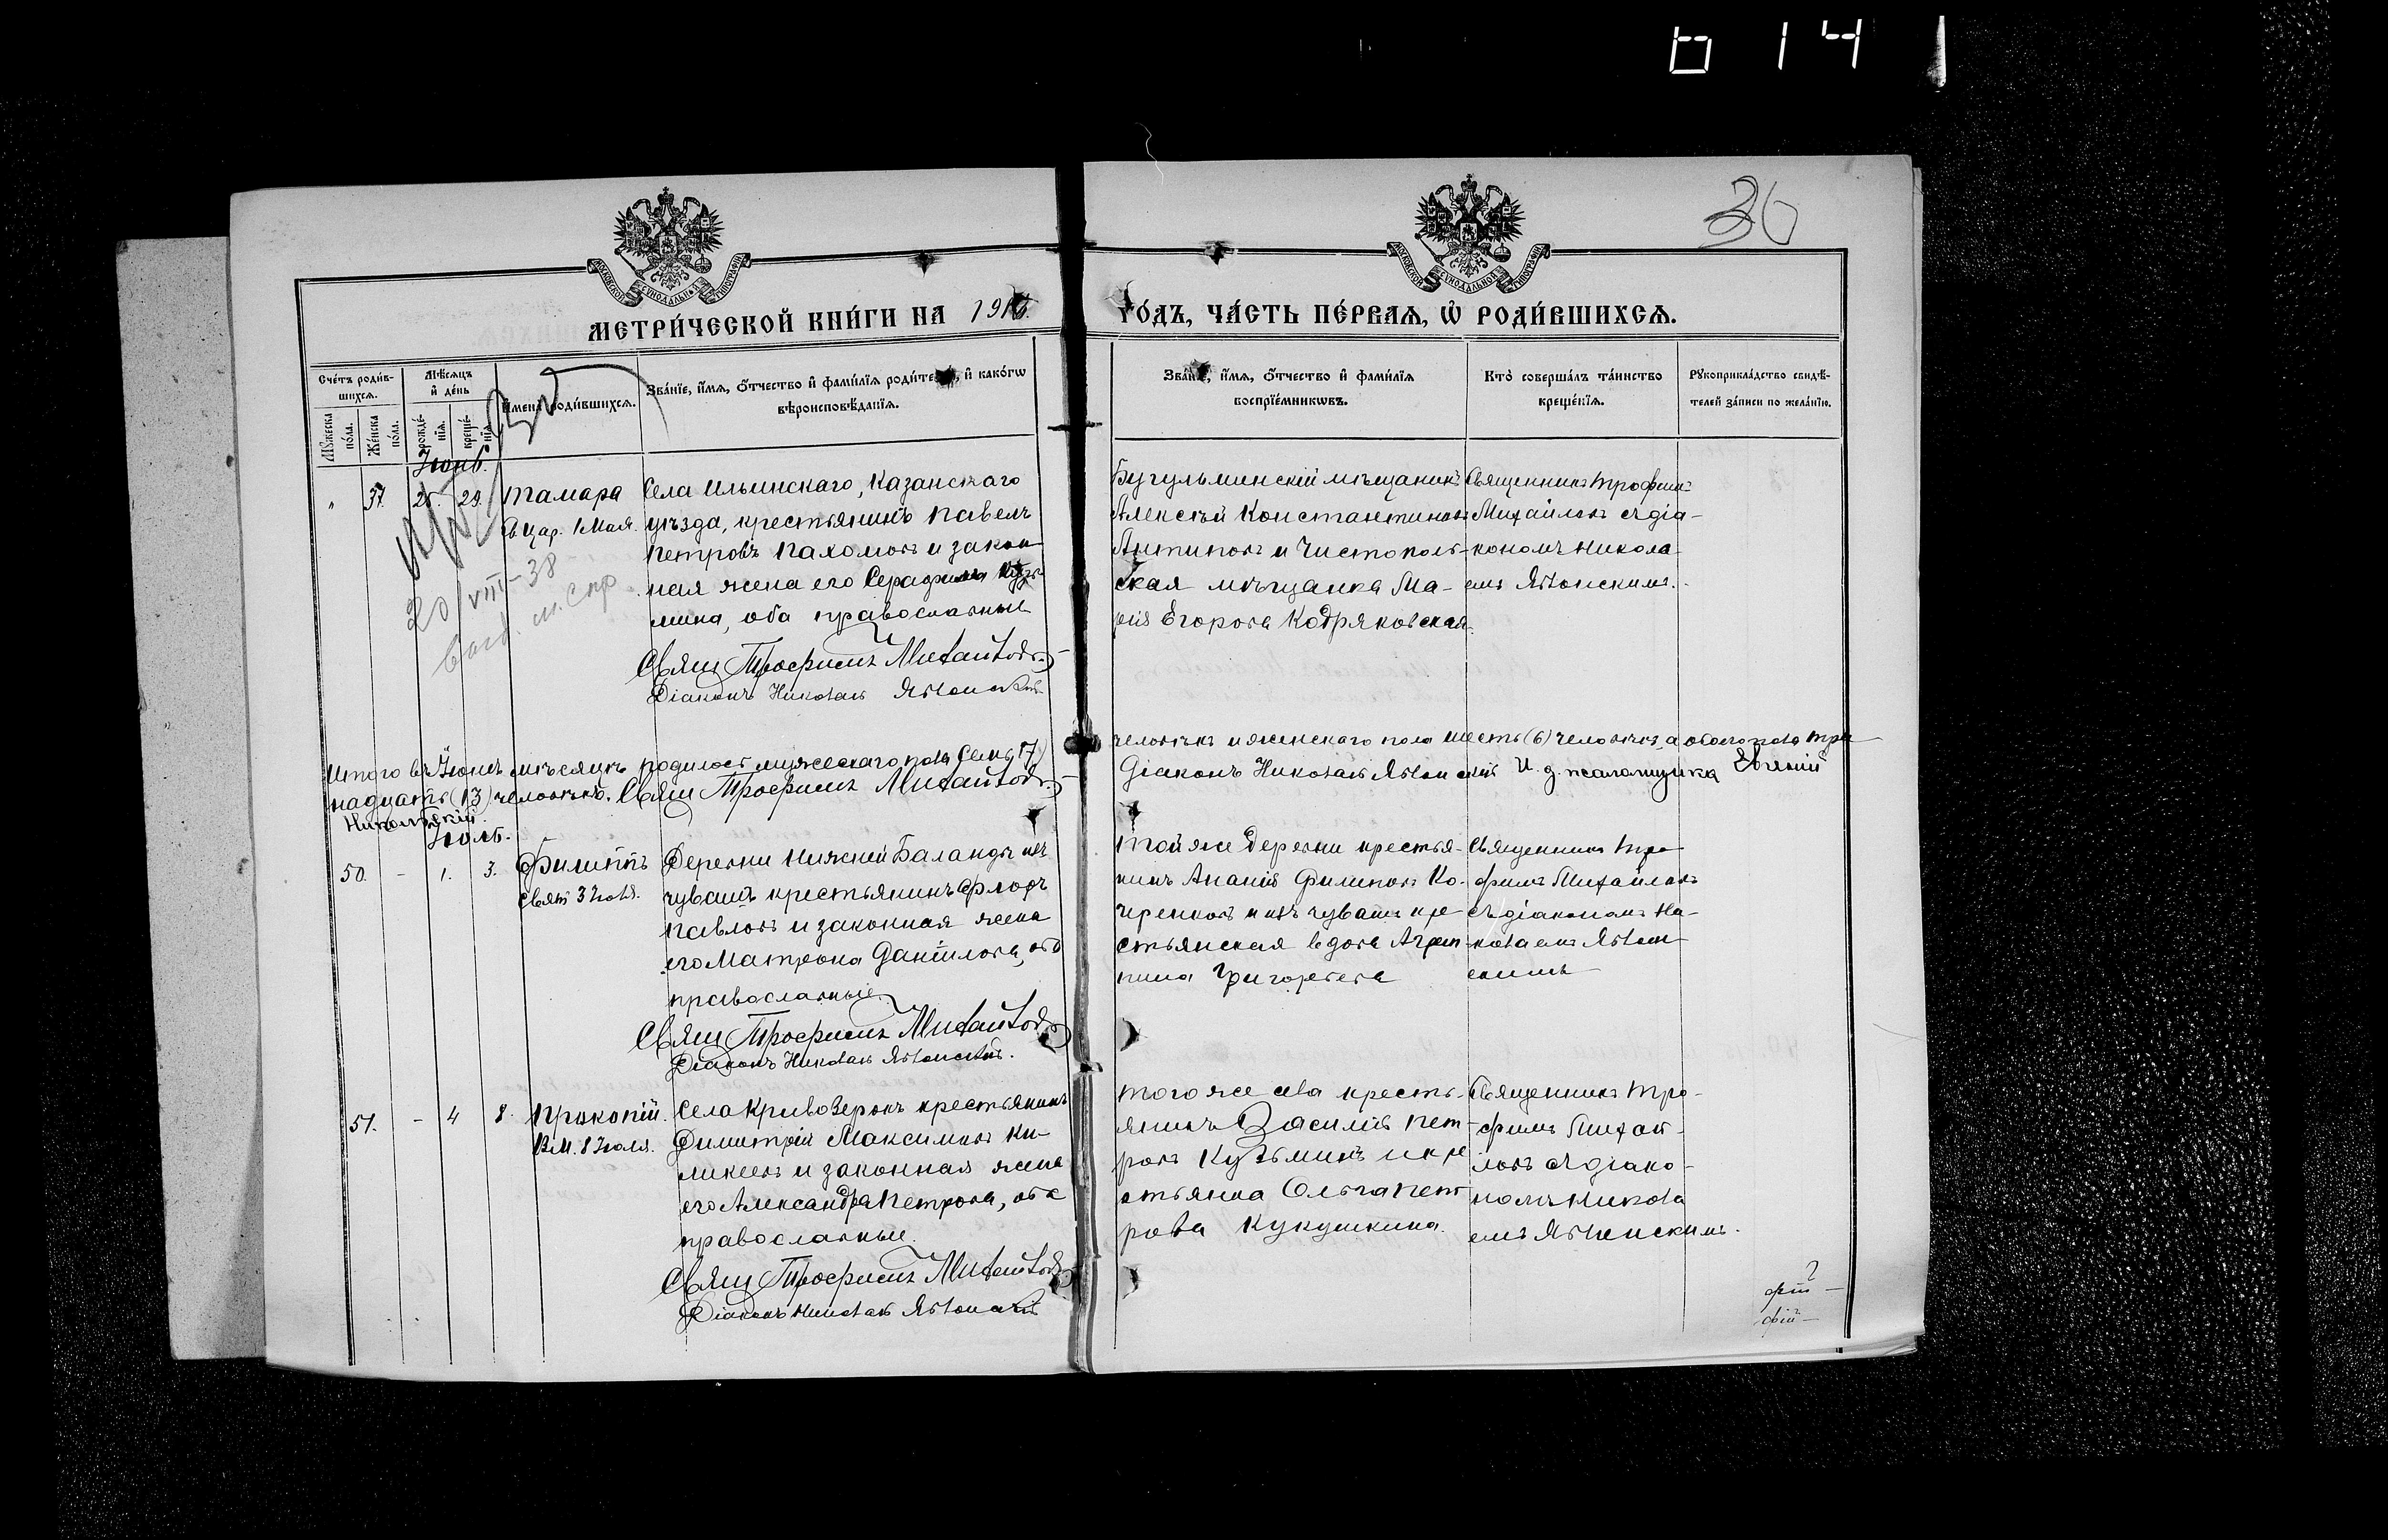 30
МОСКОВСКОЙ СѴНОДАЛЬНОЙ ТИПОГРАФІИ
МОСКОВСКОЙ СѴНОДАЛЬНОЙ ТИПОГРАФІИ
МЕТРИ́ЧЕСКОЙ КНИ́ГИ НА 1916.
ГО́ДЪ, ЧА́СТЬ ПЕ́РВАѦ, Ѡ҆ РОДИ́ВШИХСѦ.
Сче́тъ роди́в-
шихсѧ.
Мꙋ́жеска по́ла.
Же́нска по́ла.
Мѣ́сѧцъ
и҆ де́нь
рожде́-
нїѧ.
креще́-
нїѧ.
И҆мена̀ роди́вшихсѧ.
Зва́нїе, и҆́мѧ, ѻ҆́тчество и҆ фамилїѧ роди́телей, и҆ како́гѡ
вѣроисповѣ́данїѧ.
Зва́нїе, и҆́мѧ, ѻ҆́тчество и҆ фамилїѧ
воспрїе́мникѡвъ.
Кто̀ соверша́лъ та́инство
креще́нїѧ.
Рꙋкоприкла́дство свидѣ́-
телей за́писи по жела́нїю.
Іюнь.
" 37. 25. 29.
Тамара
Св. цар. 1 Мая.
20/VIII-38
Села Ильинскаго, Казанскаго
уѣзда, крестьянинъ Павелъ
Петровъ Пахомовъ и закон-
ная жена его Серафима Кузь-
мина, оба православные
Свящ Трофимъ Михайловъ.
Діаконъ Николай Яблонскій
Бугульминскій мѣщанинъ
Алексѣй Константиновъ
Антиповъ и Чистополь-
ская мѣщанка Ма-
рія Егорова Кодряковская.
Священникъ Трофимъ
Михайловъ съ діа-
кономъ Никола-
емъ Яблонскимъ.
Итого въ Іюнѣ мѣсяцѣ родилось мужескаго пола семь (7)
человѣкъ и женскаго пола шесть (6) человѣкъ, а обоего пола три-
надцать (13) человѣкъ. Свящ Трофимъ Михайловъ.
Діаконъ Николай Яблонскій И. д. псаломщика Евгеній
Никольскій.
Іюль.
50. - 1. 3.
Филиппъ
Свят 3 Іюля.
Деревни Нижней Баланды изъ
чувашъ крестьянинъ Флоръ
Павловъ и законная жена
его Матрона Даніилова, оба
православные.
Свящ Трофимъ Михайловъ
Діаконъ Николай Яблонскій.
Той же деревни крестья-
нинъ Ананій Филиповъ Ко-
ченковъ и изъ чувашъ кре-
стьянская вдова Агрип-
пина Григорьева
Священникъ Тро-
фимъ Михайловъ
съ діакономъ Ни-
колаемъ Яблон-
скимъ
51. - 4 8.
Прокопій.
В.М. 8 Іюля.
Села Кривоозерокъ крестьянинъ
Димитрій Максимовъ Ки-
ликеевъ и законная жена
его Александра Петрова, оба
православные.
Свящ Трофимъ Михайловъ
Діаконъ Николай Яблонскій
Того же села кресть-
янинъ Василій Пет-
ровъ Кузьминъ и кре
стьянка Ольга Пет
рова Кукушкина.
Священникъ Тро-
фимъ Михай-
ловъ съ діако-
номъ Никола
емъ Яблонскимъ.